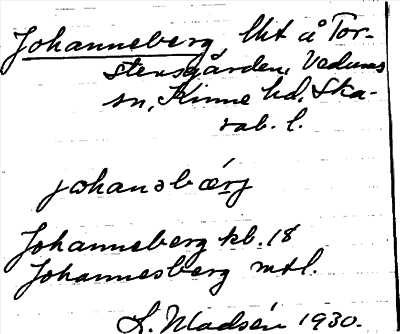 Johanneberg, lht å Tor-
stensgården, Vedums
sn, Kinne hd, Ska-
rab. l.
johanəbærj
Johanneberg kb. 18
Johannesberg mtl.
L. Madsén 1930.